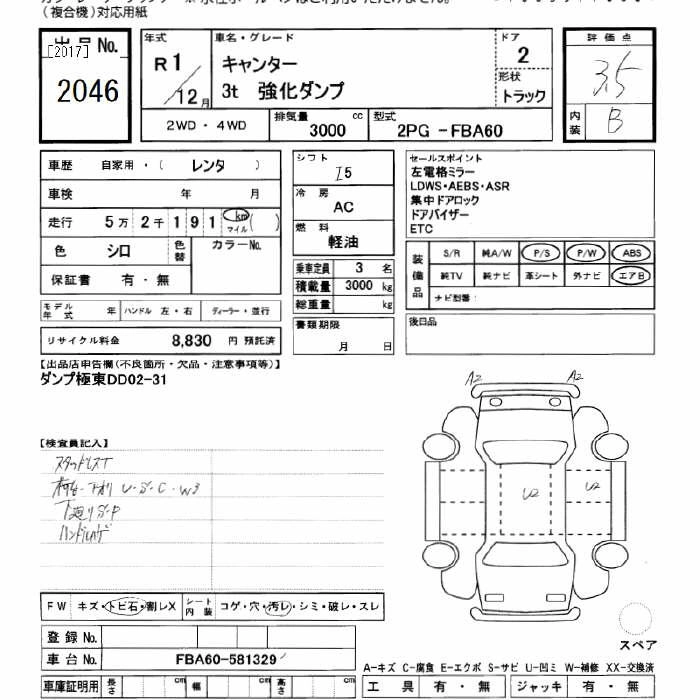 （複合機）対応用紙
出品No.
[2017]
2046
年式
R1/12月
車名・グレード
キャンター
3t 強化ダンプ
ドア
2
形状
トラック
評価点
3.5
内装
B
2WD・4WD
排気量
3000 cc
型式
2PG-FBA60
車歴 自家用・( レンタ )
車検 年 月
走行 5万2千191 km マイル ( )
色 シロ 色替 カラーNo.
保証書 有・無
モデル年式 年 ハンドル 左・右 ディーラー・並行
リサイクル料金 8,830 円 預託済
シフト
I5
冷房
AC
燃料
軽油
乗車定員 3 名
積載量 3000 kg
総重量 kg
書類期限
月 日
セールスポイント
左電格ミラー
LDWS・AEBS・ASR
集中ドアロック
ドアバイザー
ETC
装備品
S/R 純A/W P/S P/W ABS
純TV 純ナビ 革シート 外ナビ エアB
ナビ型番：
後日品
【出品店申告欄(不良箇所・欠品・注意事項等)】
ダンプ極東DD02-31
【検査員記入】
スタッドレスT
荷台・下廻り U・S・C・W3
下廻りS・P
ハンドルハゲ
A2 A2
U2 U2
FW キズ・トビ石・割レX シート内装 コゲ・穴・汚レ・シミ・破レ・スレ
登録No.
車台No. FBA60-581329
車庫証明用 長さ cm 幅 cm 高さ cm
スペア
A-キズ C-腐食 E-エクボ S-サビ U-凹ミ W-補修 XX-交換済
工具 有・無 ジャッキ 有・無